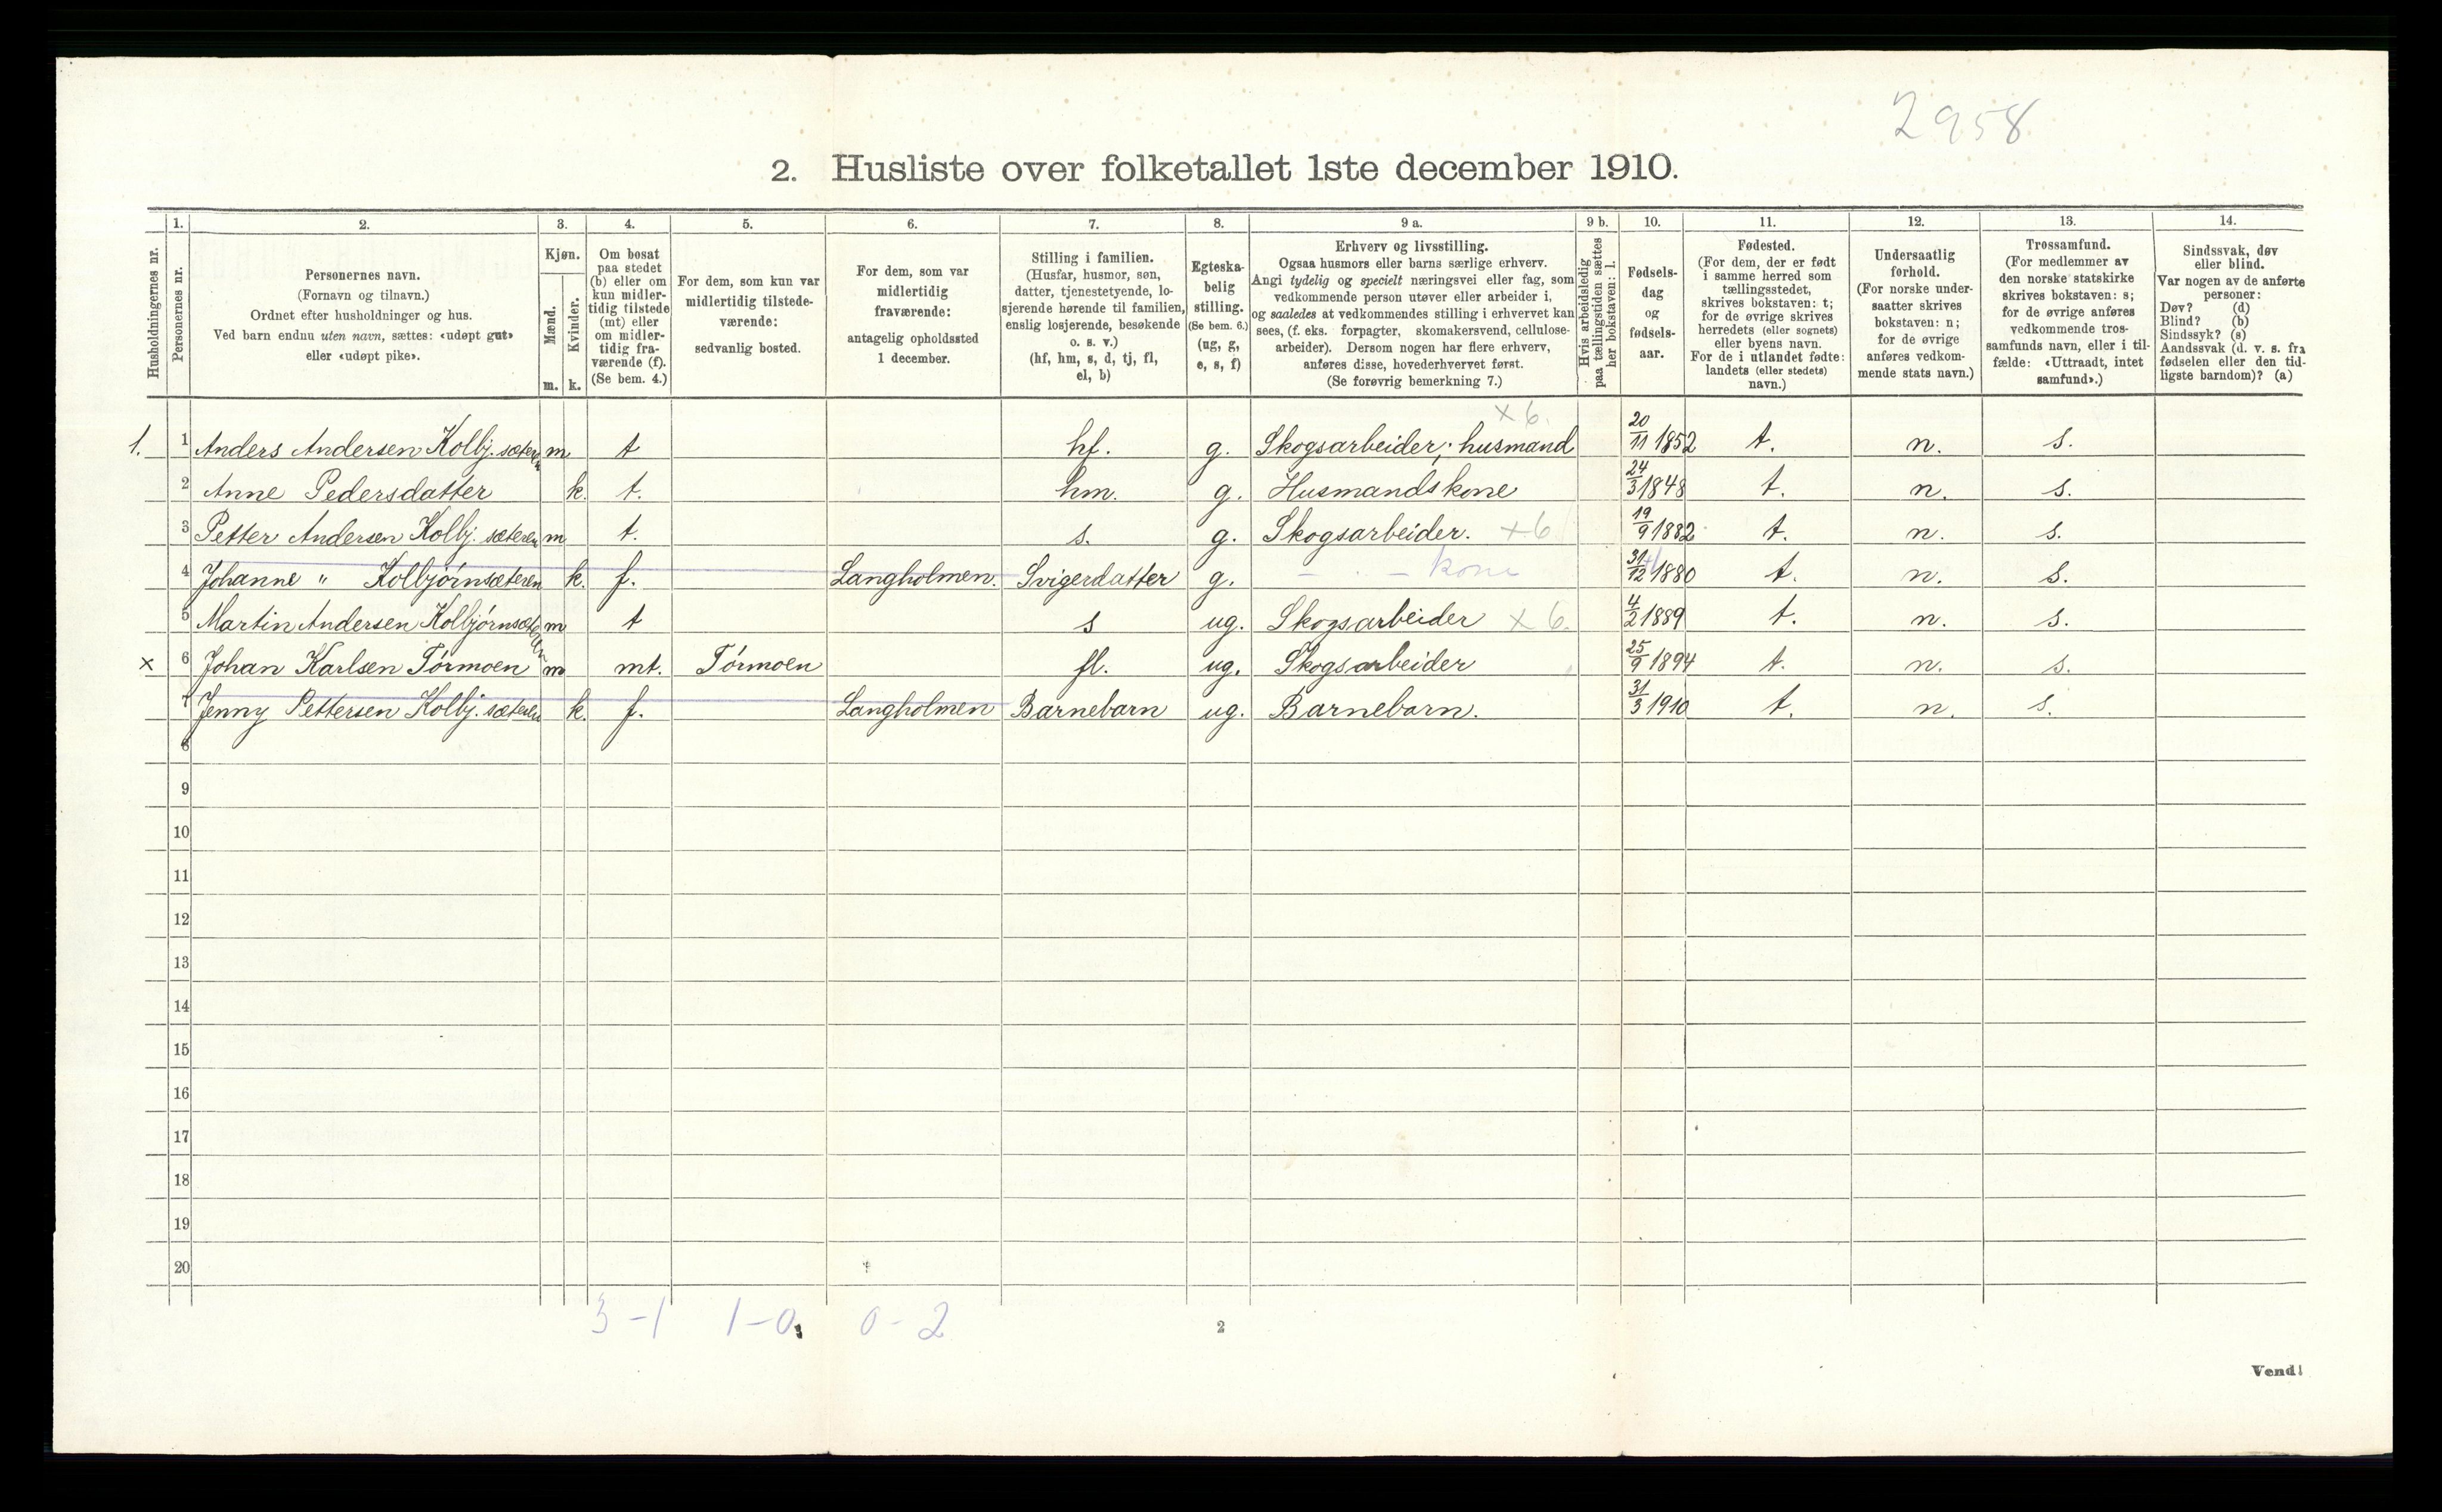 2958
2. Husliste over folketallet 1ste december 1910.
Husholdningernes nr.
1. Personernes nr.
2. Personernes navn.
(Fornavn og tilnavn.)
Ordnet efter husholdninger og hus.
Ved barn endnu uten navn, sættes: «udøpt gut»
eller «udøpt pike».
3. Kjøn.
Mænd. m.
Kvinder. k.
4. Om bosat
paa stedet
(b) eller om
kun midler-
tidig tilstede
(mt) eller
om midler-
tidig fra-
værende (f).
(Se bem. 4.)
5. For dem, som kun var
midlertidig tilstede-
værende:
sedvanlig bosted.
6. For dem, som var
midlertidig
fraværende:
antagelig opholdssted
1 december.
7. Stilling i familien.
(Husfar, husmor, søn,
datter, tjenestetyende, lo-
sjerende hørende til familien,
enslig losjerende, besøkende
o. s. v.)
(hf, hm, s, d, tj, fl,
el, b)
8. Egteska-
belig
stilling.
(Se bem. 6.)
(ug, g,
e, s, f)
9 a. Erhverv og livsstilling.
Ogsaa husmors eller barns særlige erhverv.
Angi tydelig og specielt næringsvei eller fag, som
vedkommende person utøver eller arbeider i,
og saaledes at vedkommendes stilling i erhvervet kan
sees, (f. eks. forpagter, skomakersvend, cellulose-
arbeider). Dersom nogen har flere erhverv,
anføres disse, hovederhvervet først.
(Se forøvrig bemerkning 7.)
9 b. Hvis arbeidsledig
paa tællingstiden sættes
her bokstaven: l.
10. Fødsels-
dag
og
fødsels-
aar.
11. Fødested.
(For dem, der er født
i samme herred som
tællingsstedet,
skrives bokstaven: t;
for de øvrige skrives
herredets (eller sognets)
eller byens navn.
For de i utlandet fødte:
landets (eller stedets)
navn.)
12. Undersaatlig
forhold.
(For norske under-
saatter skrives
bokstaven: n;
for de øvrige
anføres vedkom-
mende stats navn.)
13. Trossamfund.
(For medlemmer av
den norske statskirke
skrives bokstaven: s;
for de øvrige anføres
vedkommende tros-
samfunds navn, eller i til-
fælde: «Uttraadt, intet
samfund».)
14. Sindssvak, døv
eller blind.
Var nogen av de anførte
personer:
Døv? (d)
Blind? (b)
Sindssyk? (s)
Aandssvak (d. v. s. fra
fødselen eller den tid-
ligste barndom)? (a)
1. 1 Anders Andersen Kolbj. sæteren m t hf. g. Skogsarbeider; husmand × 6. 20/11 1852 t. n. s.
2 Anne Pedersdatter k. t. hm. g. Husmandskone 24/3 1848 t. n. s.
3 Petter Andersen Kolbj. sæteren m t. s. g. Skogsarbeider. × 6 19/9 1882 t. n. s.
4 Johanne " Kolbjórnsæteren k. f. Langholmen. Svigerdatter g. - . - kone 31/12 1880 t. n. s.
5 Martin Andersen Kolbjórnsæteren m t s ug. Skogsarbeider × 6. 4/2 1889 t. n. s.
× 6 Johan Karlsen Tórmoen m mt. Tórmoen fl. ug. Skogsarbeider 25/9 1894 t. n. s.
7 Jenny Pettersen Kolbj. sæteren k. f. Langholmen Barnebarn ug. Barnebarn. 31/3 1910 t. n. s.
8
9
10
11
12
13
14
15
16
17
18
19
20
3-1 1-0 0-2
2
Vend!